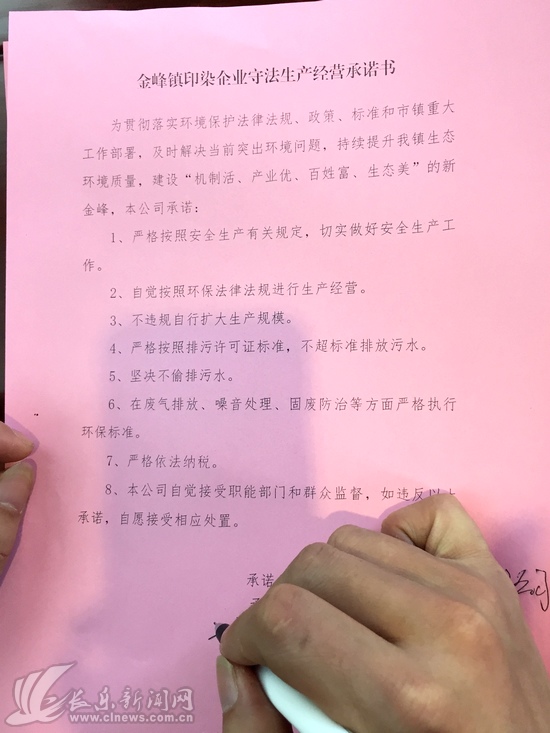 金峰镇印染企业守法生产经营承诺书
为贯彻落实环境保护法律法规、政策、标准和市镇重大
工作部署，及时解决当前突出环境问题，持续提升我镇生态
环境质量，建设“机制活、产业优、百姓富、生态美”的新
金峰，本公司承诺：
1、严格按照安全生产有关规定，切实做好安全生产工
作。
2、自觉按照环保法律法规进行生产经营。
3、不违规自行扩大生产规模。
4、严格按照排污许可证标准，不超标准排放污水。
5、坚决不偷排污水。
6、在废气排放、噪音处理、固废防治等方面严格执行
环保标准。
7、严格依法纳税。
8、本公司自觉接受职能部门和群众监督，如违反以上
承诺，自愿接受相应处置。
承诺
长乐新闻网
www.clnews.com.cn